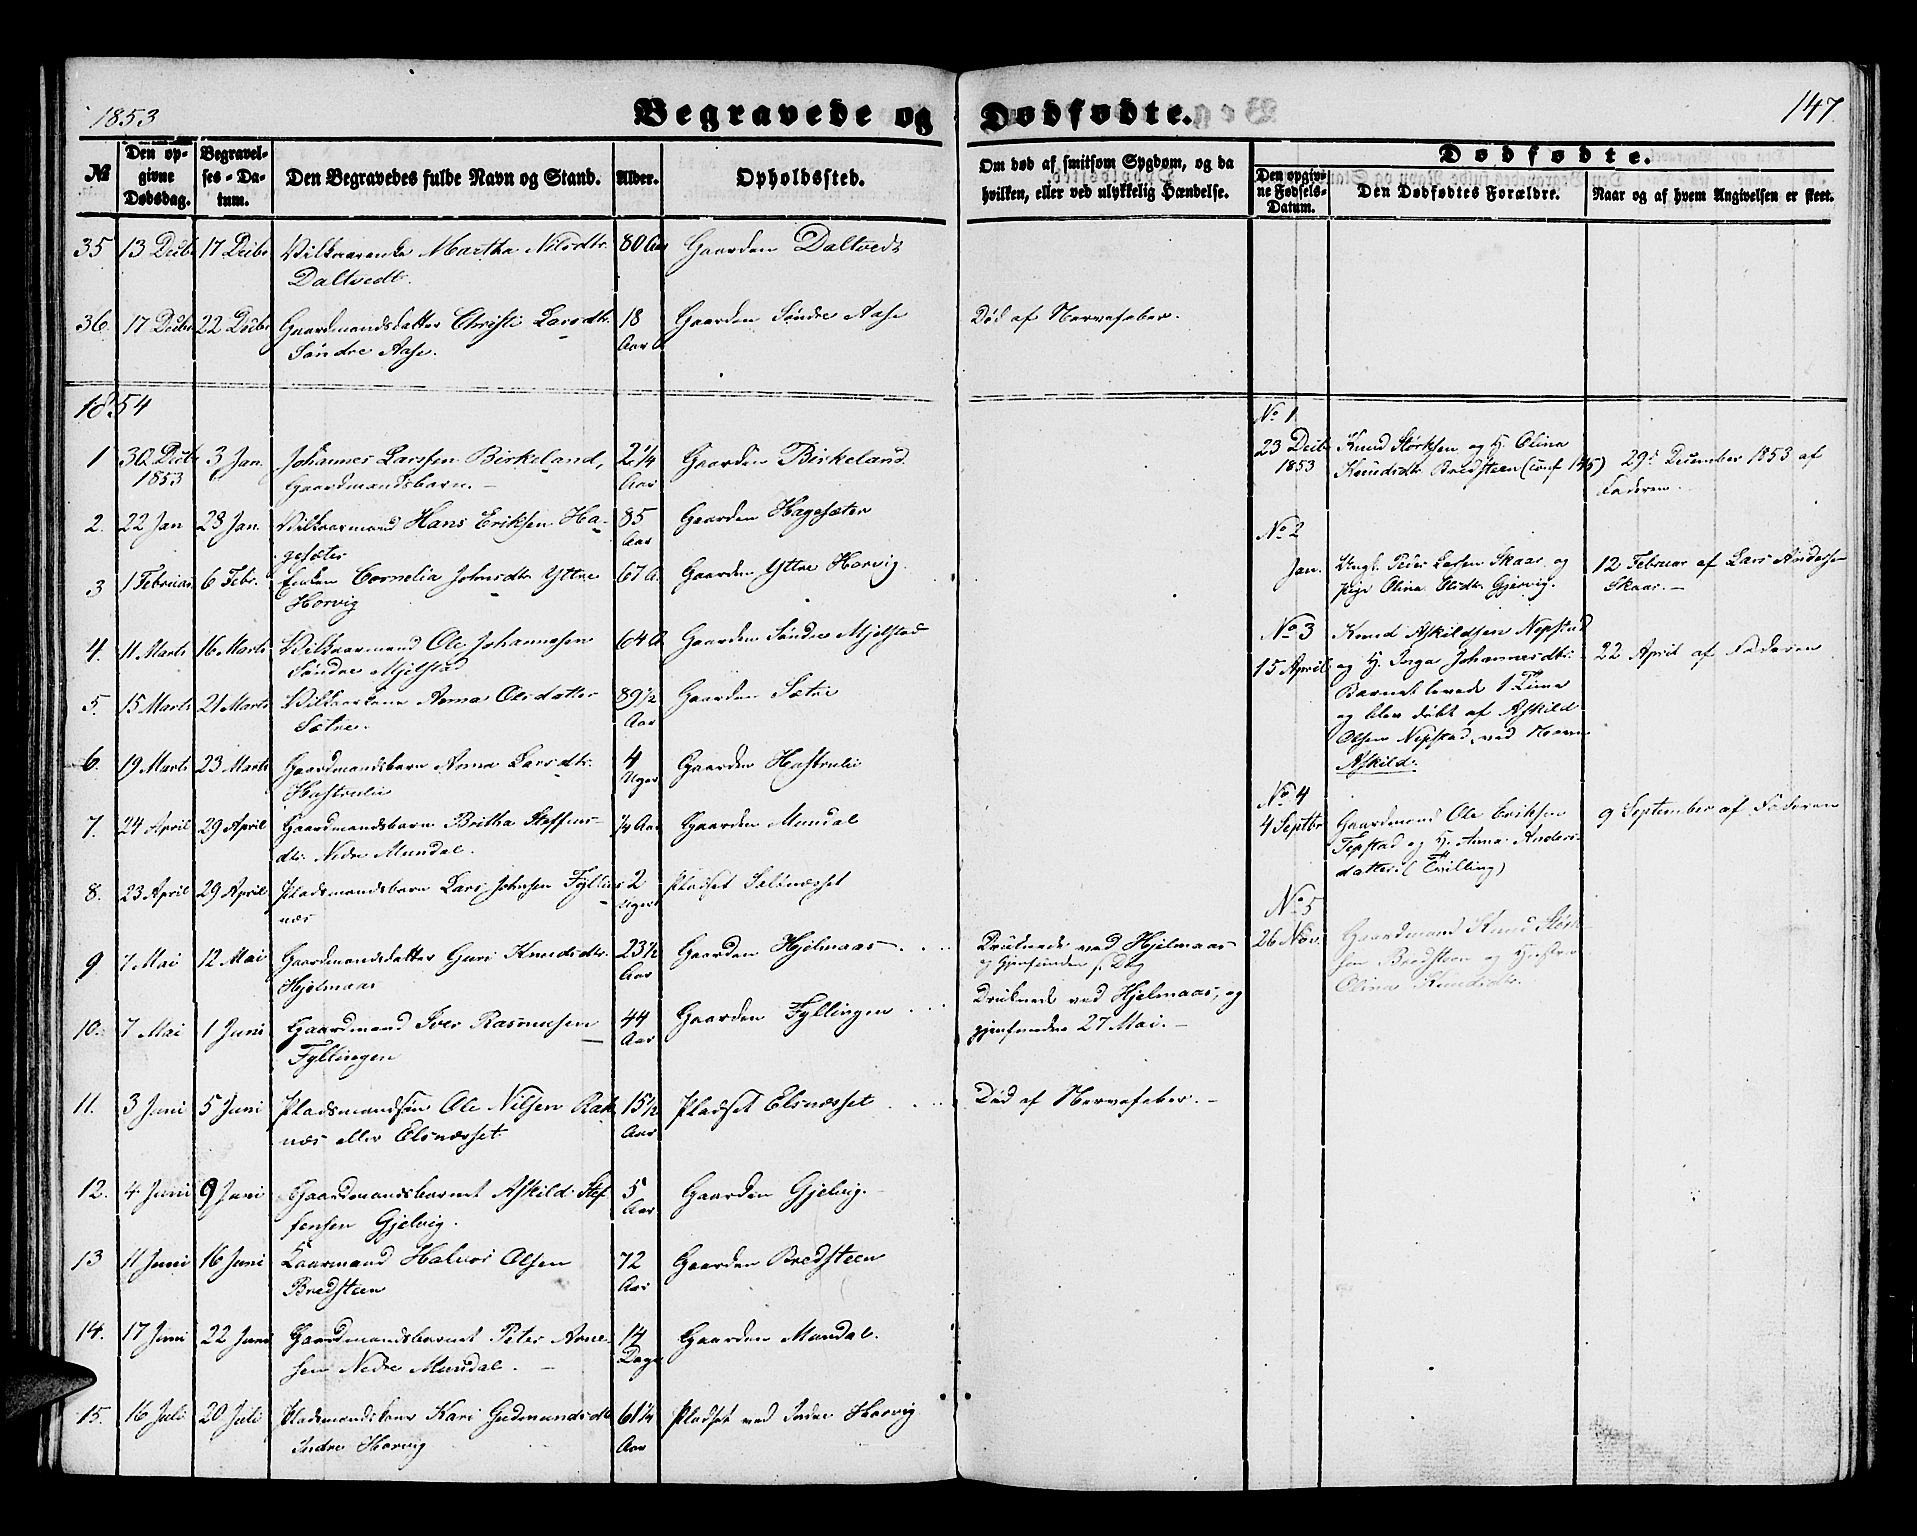 1853
Begravede og Dødfødte.
147
№
Den opgivne Dødsdag.
Begravelses-Datum.
Den Begravedes fulde Navn og Stand.
Alder.
Opholdssted.
Om død af smitsom Sygdom, og da hvilken, eller ved ulykkelig Hændelse.
Dødfødte.
Den opgivne Fødsels-Datum.
Den Dødfødtes Forældre.
Naar og af hvem Angivelsen er skeet.
35 13 Decbr 17 Decbr Vilkaarenke Martha Nilsdtr. 80 Aar Gaarden Daltvedt
Daltvedt.
36. 17 Decbr 22 Decbr Gaardmandsdatter Christi Larsdtr. 18 Gaarden Søndre Aase Død af Nervefeber.
Søndre Aase. Aar
1854
1 30 Decbr 3 Jan. Johannes Larssen Birkeland, 2 1/4 Gaarden Birkeland
1853 Gaardmandsbarn. Aar
2. 22 Jan 28 Jan. Vilkaarmand Hans Eriksen Ha- 85 Gaarden Hagesæter
gesæter Aar
3 1 Februar 6 Febr. Enken Cornelia Johnsdtr Yttre 67 A. Gaarden Yttre Horvig.
Horvig
4. 11 Marts 16 Marts Vilkaarmand Ole Johannesen 64 A. Gaarden Søndre Mjelstad
Søndre Mjelstad
5. 15 Marts 21 Marts Vilkaarkone Anna Olsdatter 89 1/2 Gaarden Sætre
Sætre. Aar
6. 19 Marts 23 Marts Gaardmandsbarn Anna Larsdtr. 4 Gaarden Hastvelii
Uger
7. 24 April 29 April Gaardmandsbarn Britha Steffens- 1/4 Aar Gaarden Mundal
dtr. Nedre Mundal.
8. 23 April 29 April Pladsmandsbarn Lars Johnsen Fyllings- 2 Pladset
næs Uger
9 7 Mai 12 Mai Gaardmandsdatter Guri Knudsdtr. 23 1/2 Gaarden Hjelmaas Druknede ved Hjelmaas
Hjelmaas Aar og gjenfunden s. Dag
10. 7 Mai 1 Juni Gaardmand Iver Rasmusen 44 Gaarden Fyllingen Druknede ved Hjelmaas, og
Fyllingen Aar gjenfunden 27 Mai.
11. 3 Juni 5 Juni Pladsmandsøn Ole Nilsen Rak- 15 1/2 Pladset Elsnæsset Død af Nervefeber.
næs eller Elsnæsset. Aar
12. 4 Juni 9 Juni Gaardmandsbarnet Askild Stef- 5 Gaarden Gjelvig.
fensen Gjelvig. Aar
13 11 Juni 16 Juni Kaarmand Halvor Olsen 72 Gaarden Bredsteen
Bredsteen Aar
14. 17 Juni 22 Juni Gaardmandsbarnet Peter Arne- 14 Gaarden Mundal.
sen Nedre Mundal. Dage
15. 16 Juli 20 Juli Pladsmandskone Kari Gudmundsdtr. 61 1/4 Pladset ved Indre Horvig
Indre Horvig Aar
No 1
23 Decbr Knud Størksen og H. Olina
1853 Knudsdtr. Bredsteen (conf 145) 29de December 1853 af
Faderen.
No 2
Jan. Ungk. Peder Larsen Skaar og 12 Februar af Lars Anderssen
Pige Olina Olsdtr. Gjervig. Skaar.
No 3 Knud Askildsen Nepstad
15 April og H. Inga Johannesdtr. 22 April af Faderen
Barnet levede 1 Time
og blev døbt af Askild
Olsen Nepstad, ved Navn
Askild.
No 4
4 Septbr Gaardmand Ole Eriksen 9 September af Faderen
Tepstad og H. Anna Anders-
datter. (Tvilling)
No 5
26 Nov. Gaardmand Knud Størk-
sen Bredsteen og Hustru
Olina Knudsdtr.